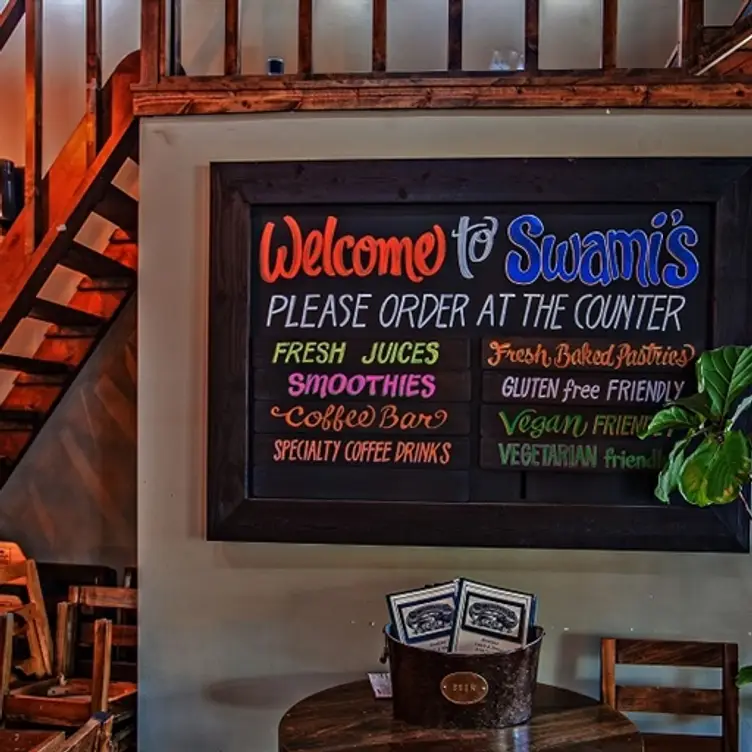 Welcome to Swami's
PLEASE ORDER AT THE COUNTER
FRESH JUICES
SMOOTHIES
Coffee Bar
SPECIALTY COFFEE DRINKS
Fresh Baked Pastries
GLUTEN free FRIENDLY
Vegan
VEGETARIAN friendly